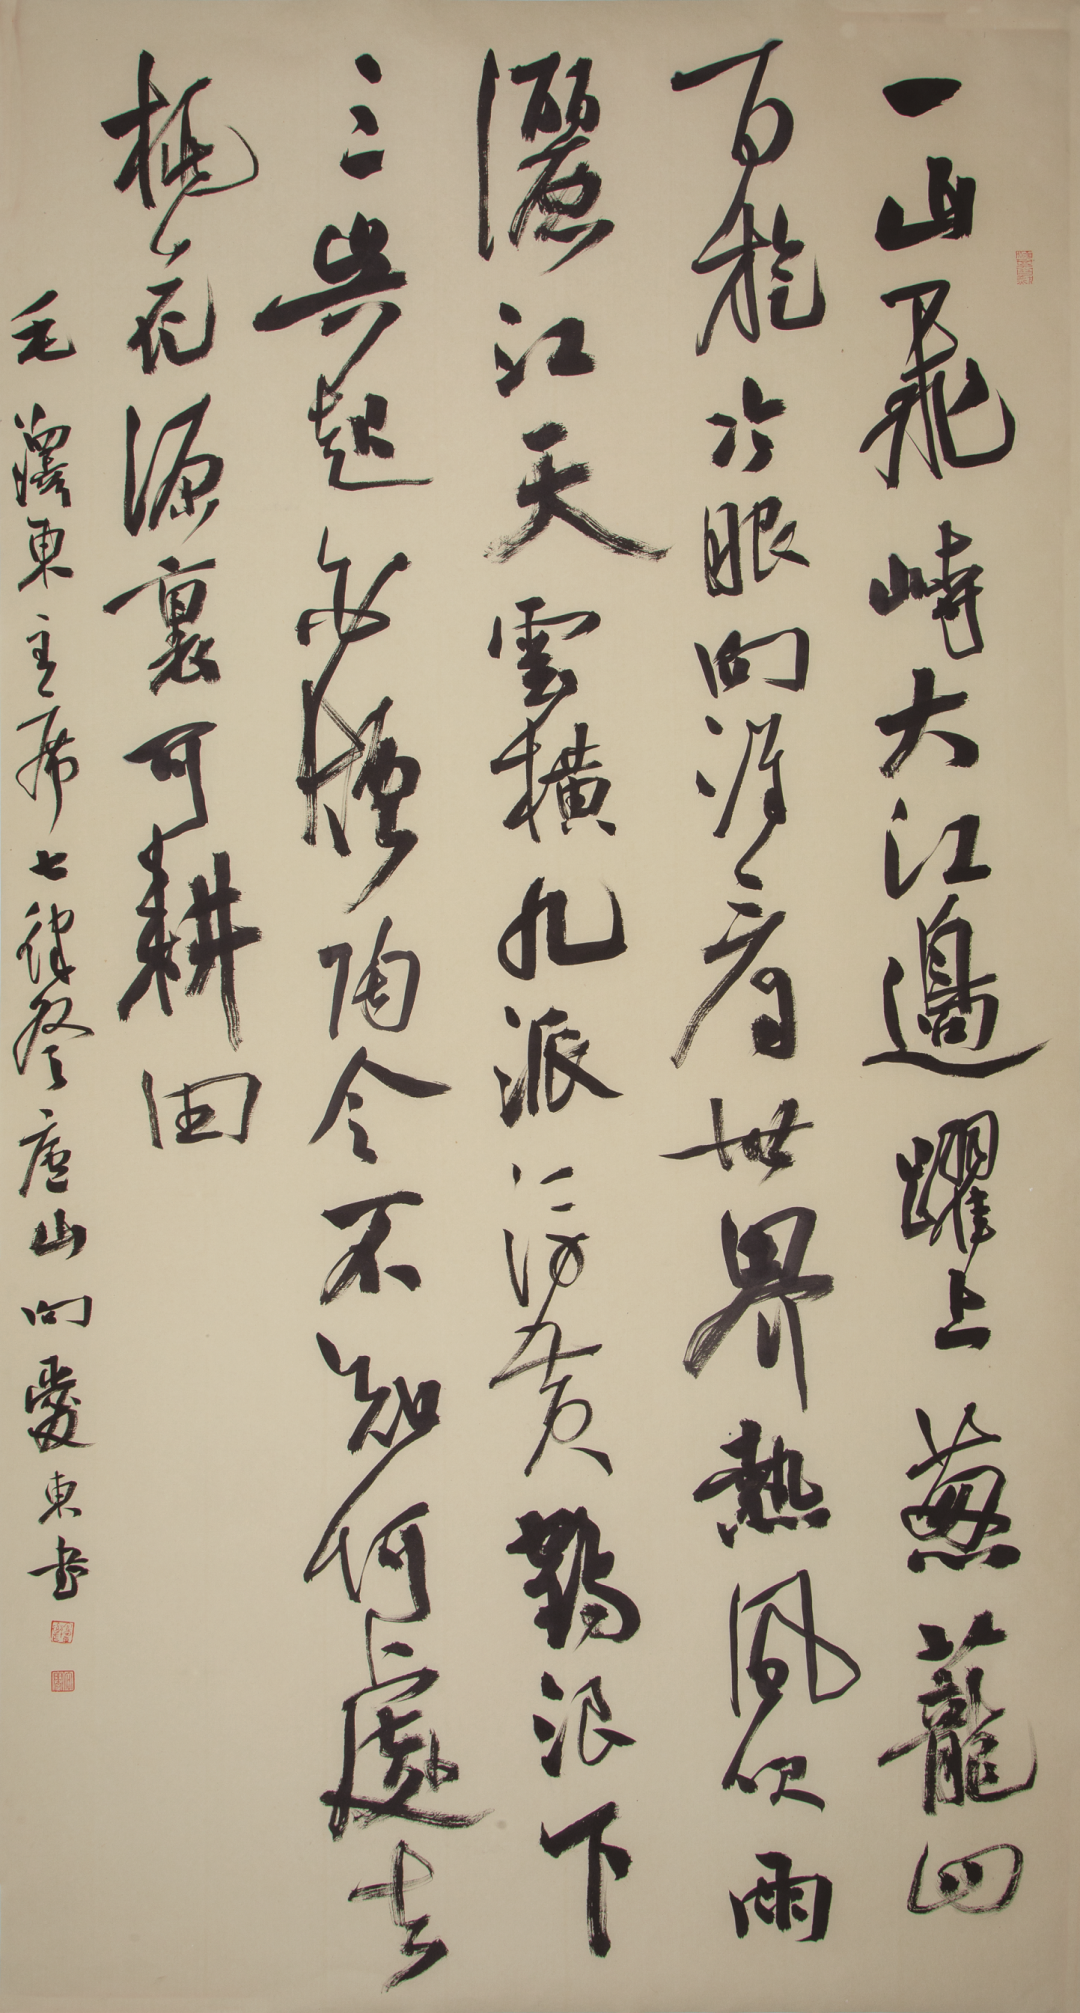 一山飛峙大江邊躍上蔥蘢四
百旋冷眼向洋看世界熱風吹雨
灑江天雲橫九派浮黃鶴浪下
三吳起白煙陶令不知何處去
桃花源裏可耕田
毛澤東主席七律登廬山向愛東書